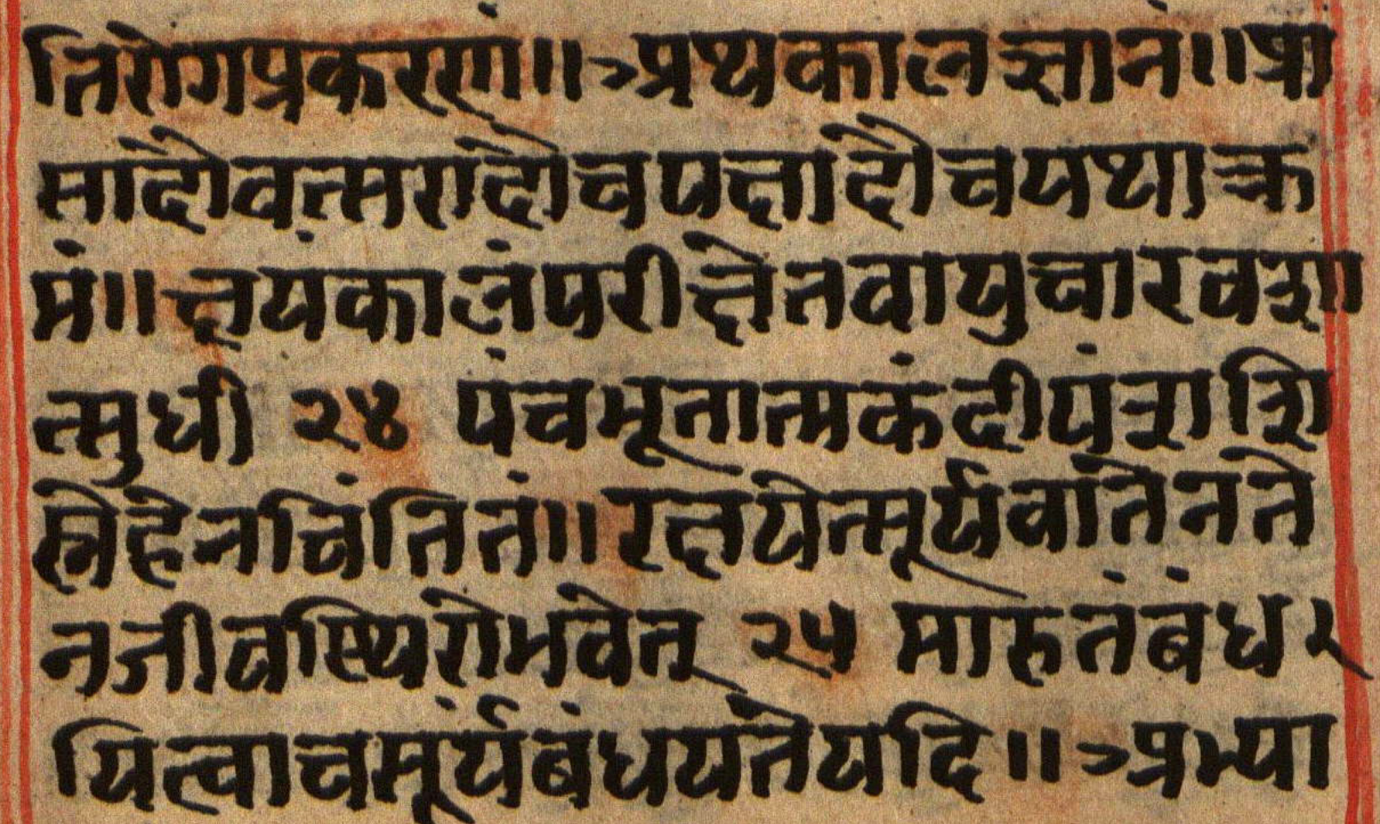 तिरोगप्रकरणं॥ अथकालज्ञानं॥ मा
सादौवत्सरादौचपक्षादौचयथाक्र
मं॥ क्षयंकालंपरीक्षेतवायुचारवशा
त्सुधी २४ पंचभूतात्मकंदीपंशशि
स्नेहेनचिंतितं॥ रक्षयेत्सूर्यवातेनते
नजीवस्थिरोभवेत् २५ मारुतंबंध
यित्वाचसूर्यंबंधयतेयदि॥ अभ्या